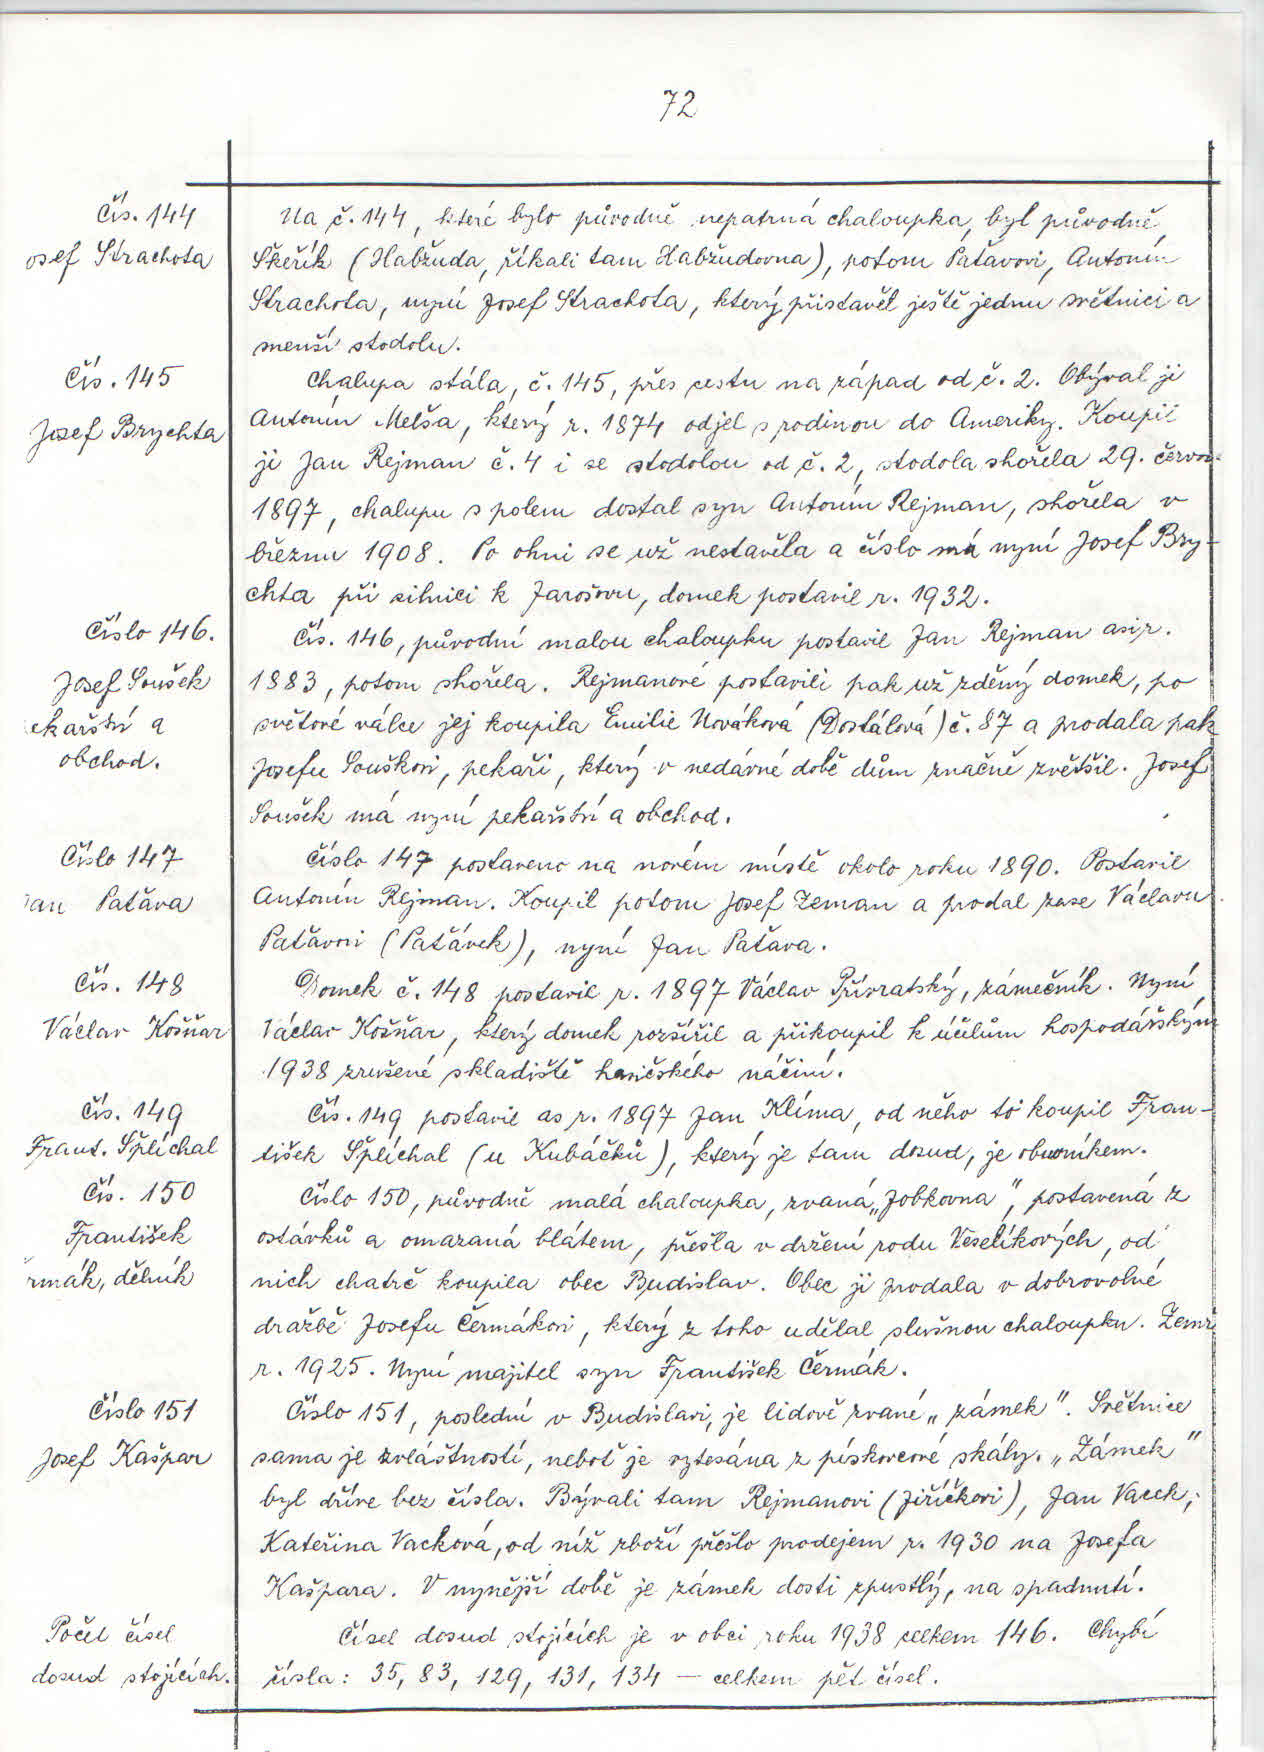 72
Čís. 144
osef Strachota
Na č. 144, které bylo původně nepatrná chaloupka, byl původně
Škeřík (Habžuda, říkali tam Habžudovna), potom Paťavovi, Antonín
Strachota, nyní Josef Strachota, který přistavěl ještě jednu světnici a
menší stodolu.
Čís. 145
Josef Brychta
Chalupa stála, č. 145, přes cestu na západ od č. 2. Obýval ji
Antonín Melša, který r. 1874 odjel s rodinou do Ameriky. Koupil
ji Jan Rejman č. 4 i se stodolou od č. 2, stodola shořela 29. červ
1897, chalupu s polem dostal syn Antonín Rejman, shořela v
březnu 1908. Po ohni se už nestavěla a číslo má nyní Josef Bry-
chta při silnici k Jarošovu, domek postavil r. 1932.
Číslo 146.
Josef Soušek
ekařství a
obchod.
Čís. 146, původní malou chaloupku postavil Jan Rejman asi r.
1883, potom shořela. Rejmanové postavili pak už zděný domek, po
světové válce jej koupila Emilie Nováková (Dostálová) č. 87 a prodala pak
Josefu Souškovi, pekaři, který v nedávné době dům značně zvětšil. Josef
Soušek má nyní pekařství a obchod.
Číslo 147
an Paťava
Číslo 147 postaveno na novém místě okolo roku 1890. Postavil
Antonín Rejman. Koupil potom Josef Zeman a prodal zase Václavu
Paťavovi (Paťávek), nyní Jan Paťava.
Čís. 148
Václav Košňar
Domek č. 148 postavil r. 1897 Václav Přívratský, zámečník. Nyní
Václav Košňar, který domek rozšířil a přikoupil k účelům hospodářským
1938 zrušené skladiště hasičského náčiní.
Čís. 149
Frant. Šplíchal
Čís. 149 postavil as r. 1897 Jan Klíma, od něho to koupil Fran-
tišek Šplíchal (u Kubáčků), který je tam dosud, je obuvníkem.
Čís. 150
František
rmák, dělník
Číslo 150, původně malá chaloupka, zvaná „Jobkovna", postavená z
ostávků a omazaná blátem, přešla v držení rodu Veselíkových, od
nich chatrč koupila obec Budislav. Obec ji prodala v dobrovolné
dražbě Josefu Čermákovi, který z toho udělal slušnou chaloupku. Zemř
r. 1925. Nyní majitel syn František Čermák.
Číslo 151
Josef Kašpar
Číslo 151, poslední v Budislavi, je lidově zvané „zámek". Světnice
sama je zvláštností, neboť je vytesána z pískovcové skály. „Zámek"
byl dříve bez čísla. Bývali tam Rejmanovi (Jiříčkovi), Jan Vacek,
Kateřina Vacková, od níž zboží přešlo prodejem r. 1930 na Josefa
Kašpara. V nynější době je zámek dosti zpustlý, na spadnutí.
Počet čísel
dosud stojících.
Čísel dosud stojících je v obci roku 1938 celkem 146. Chybí
čísla: 35, 83, 129, 131, 134 — celkem pět čísel.